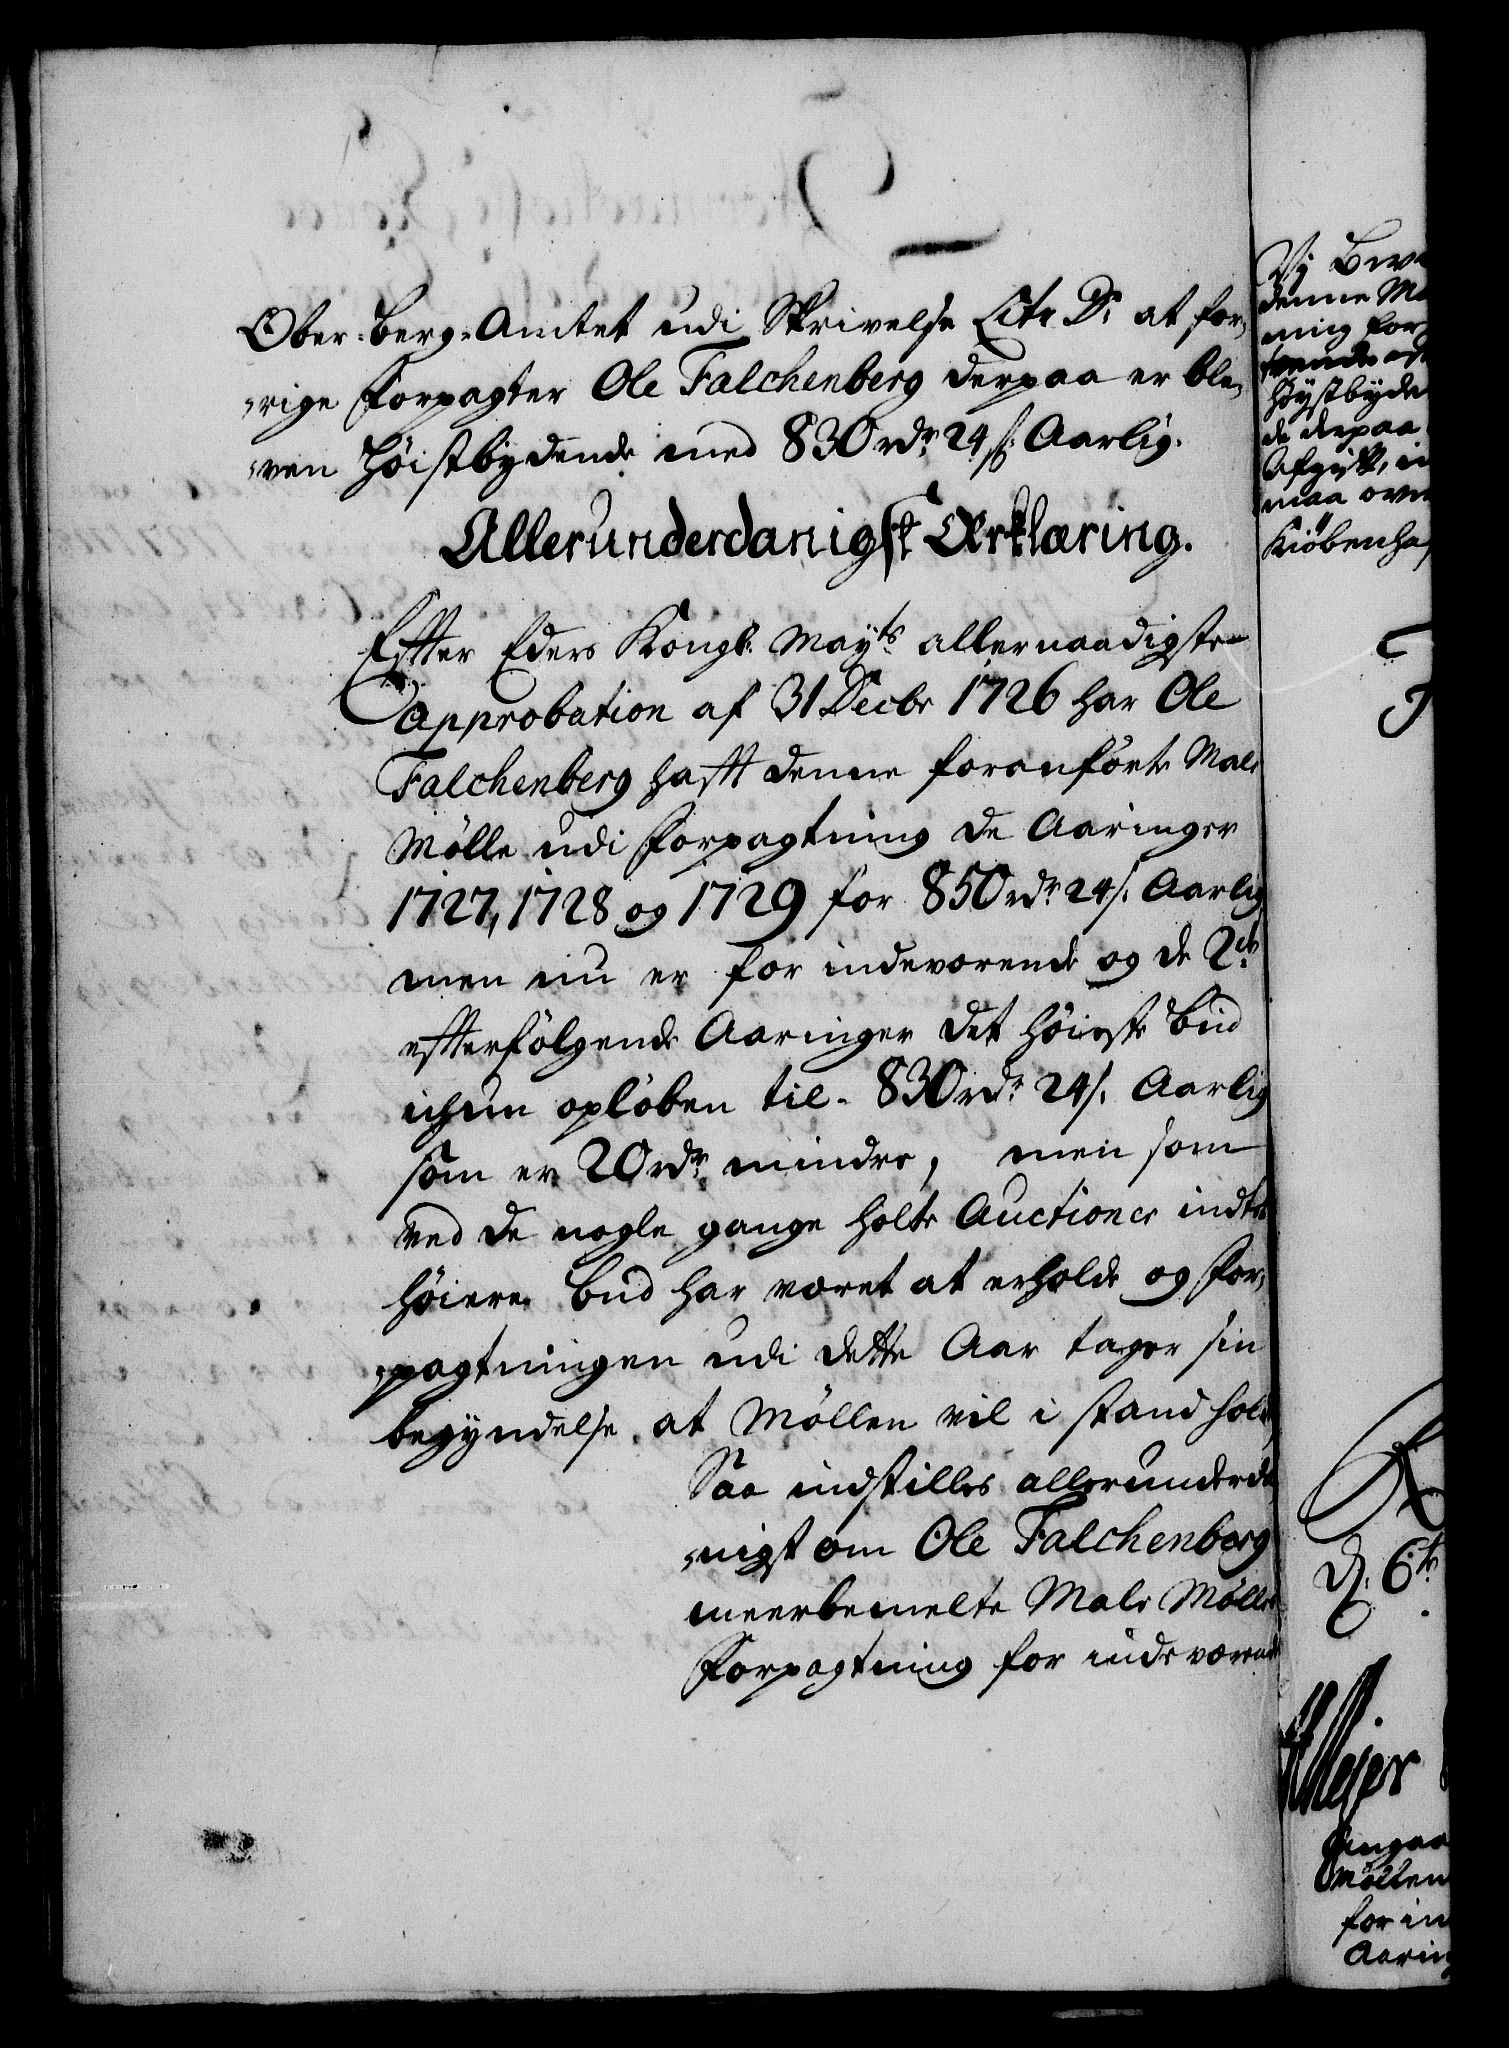 Ober-Berg-Amtet udi Skrivelse Litr D. at for,
„rige Forpagter Ole Falchenberg derpaa er ble,
„ven høistbydende med 830 rdr 24 s. Aarlig.
Allerunderdanigst Erklæring.
Effter Eders Kongl. Mayts allernaadigste
approbation af 31 Decbr 1726 har Ole
Falchenberg hafft denne foranførte Male
Mølle udi Forpagtning de Aaringer
1727, 1728 og 1729 for 850 rdr 24 s. Aarlig
men nu er for indeværende og de 2de
effterfølgende Aaringer det høieste bud
ichun opløben til 830 rdr 24 s. Aarlig
som er 20 rdr mindre, men som
ved de nogle gange holte Auctioner indtet
høiere bud har været at erholde og For,
„pagtningen udi dette Aar tager sin
begyndelse, at Møllen vil i stand hold
Saa indstilles allerunderda
„nigst om Ole Falchenberg
meerbemelte Male Mølle
Forpagtning for indeværend
Vj Bev
denne Ma
ning for
høystbyde
de derpaa
maa ov
Kiøbenha
d. 6te
Meyer
Angaa
Møllen
for in
Aaring